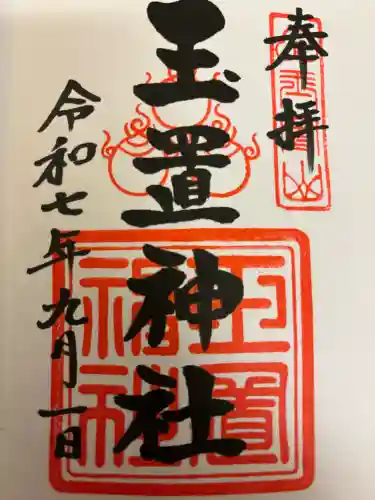 奉拝
玉置神社
令和七年九月一日
玉置
神社